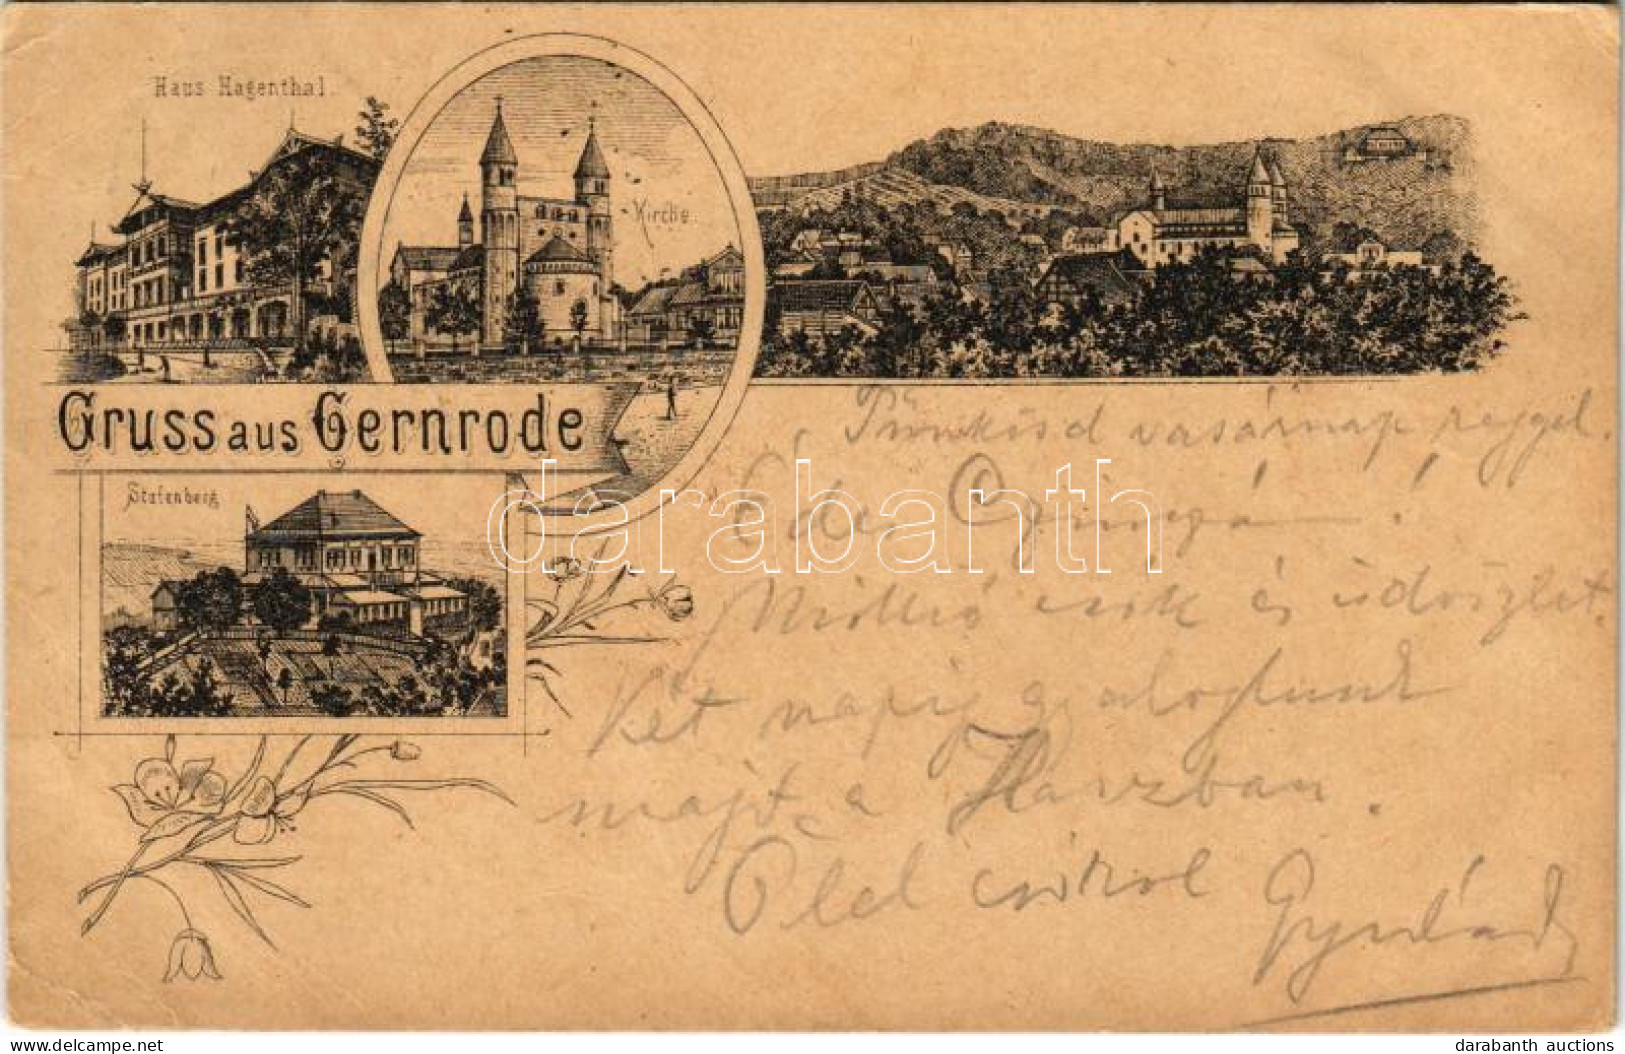 Haus Hagenthal.
Kirche.
Gruss aus Gernrode
Stufenberg
Pünkösd vasárnap reggel.
Édes
Millió csók és üdvözlet.
Két napig gyalogtunk
majd a Harzban.
Ölel csókol
darabanth
delcampe.net
darabanth auctions